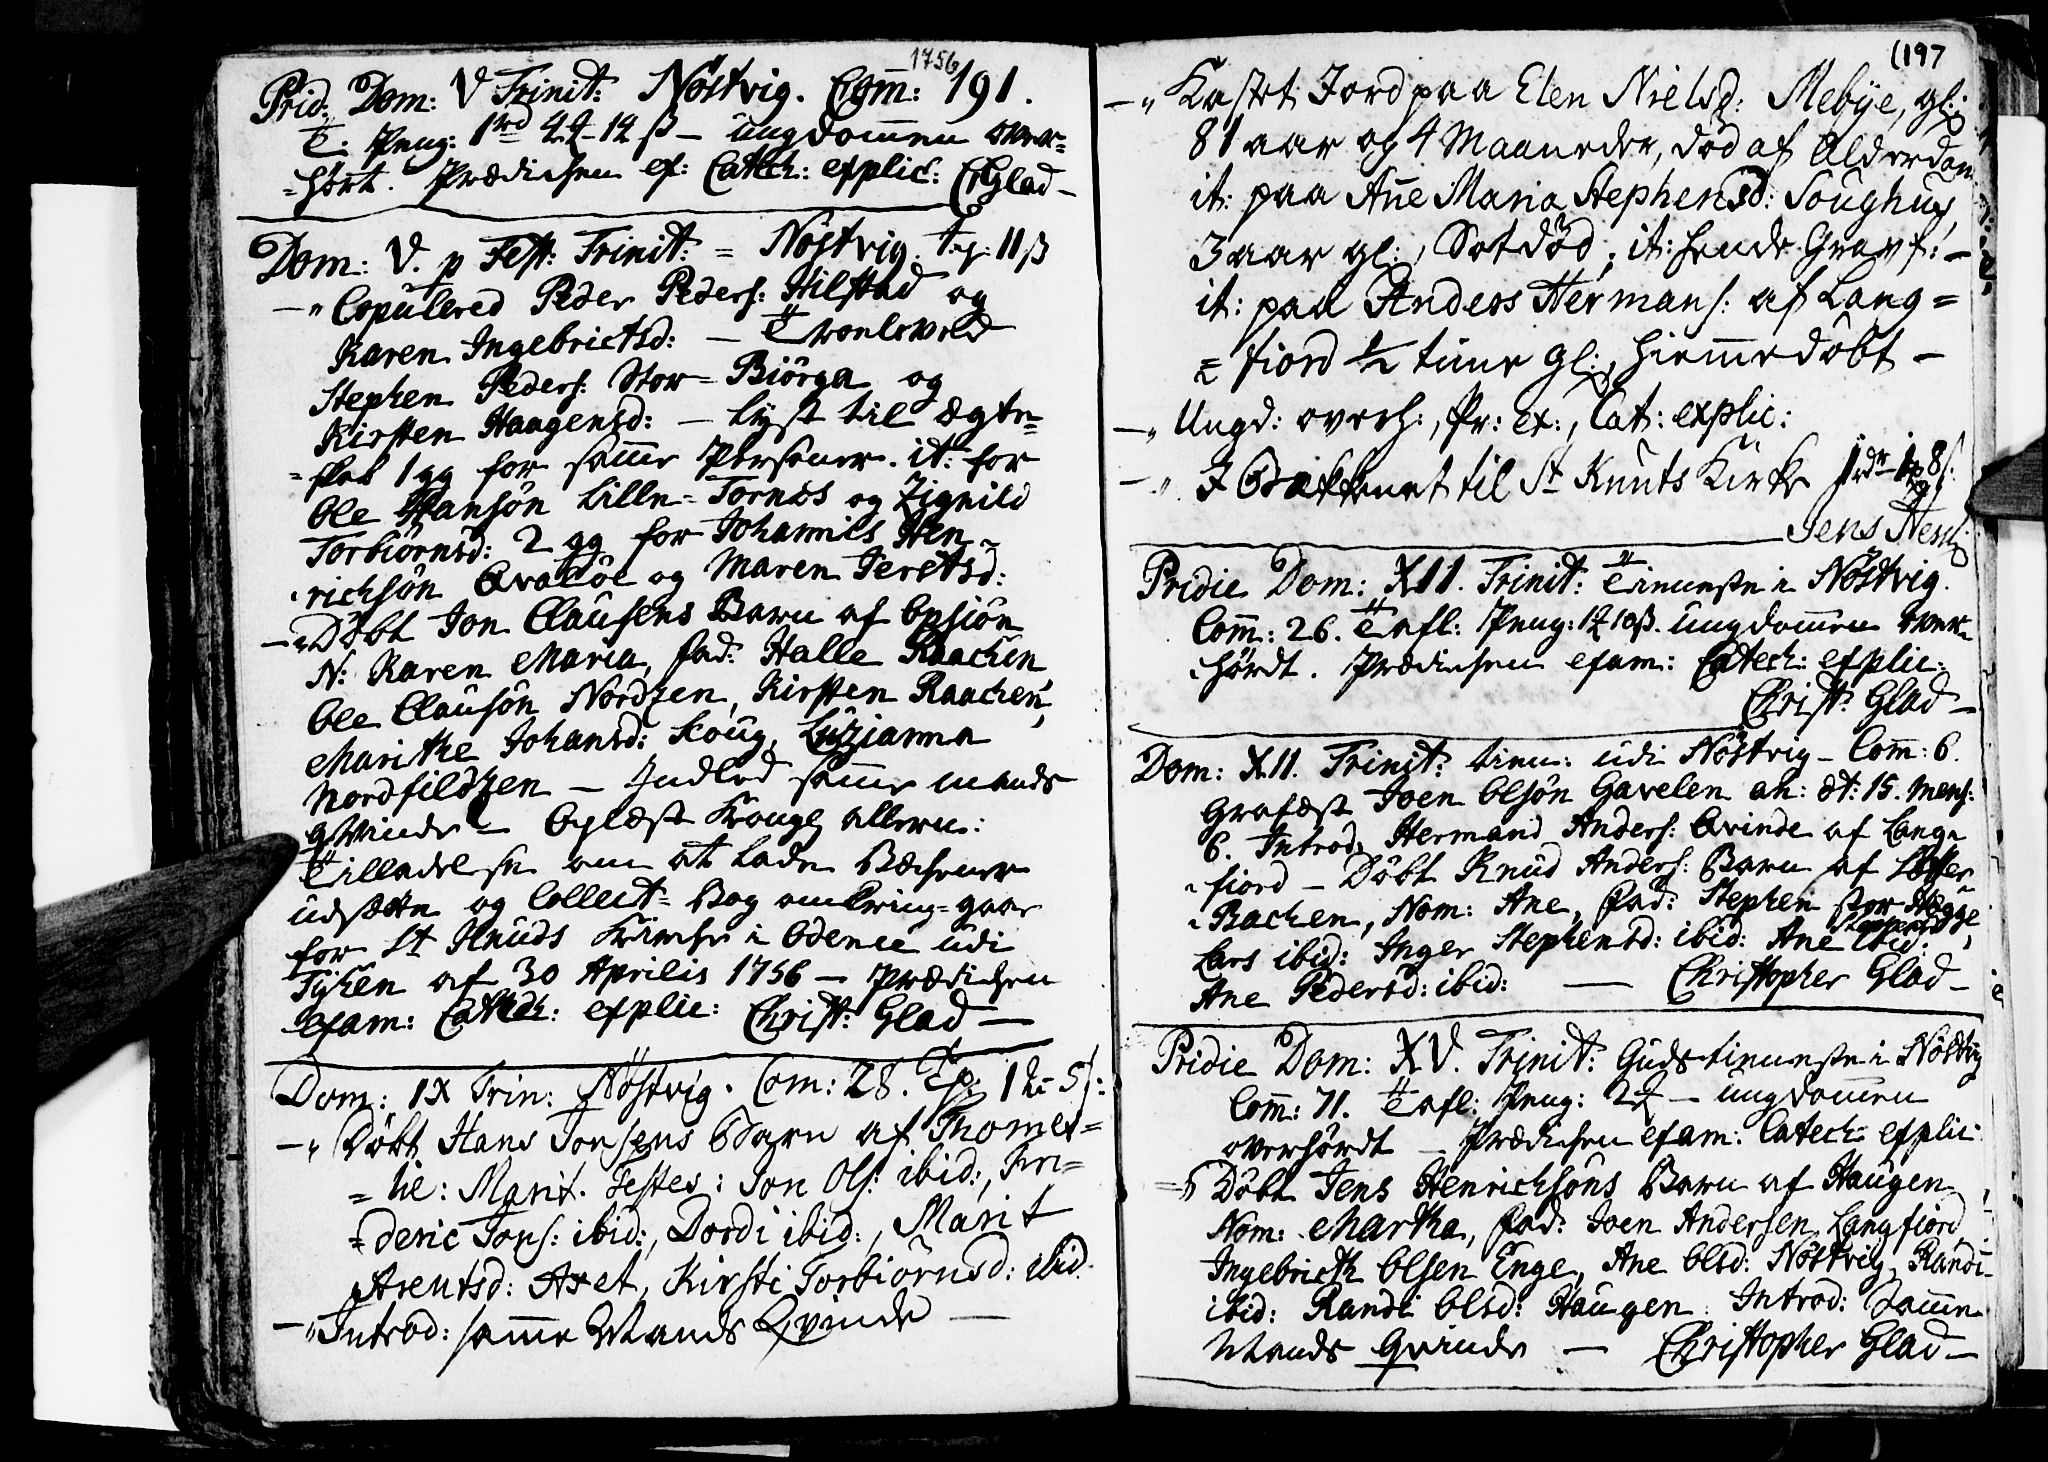 1756
Prid: Dom: V Trinit: Nöstvig. Com̄: 191.
T. Peng: 1rd 12 ß – ungdom̄en over=
=hört. Prædichen ex: Catech: explic: CGlad –
Dom: V. p Fest: Trinit: = Nöstvig. 11 ß
–" Copulered Peder Peders: Hilstad og
Karen Ingebrictsd: – Troeloved
Stephen Peders: Stor= Biörga og
Kirsten Haagensd: – lyst til Ægte=
=skab 1 gg for samme Personer. it: for
Ole Hansön Lille= Tornes og Zignild
Torbiörnsd: 2 gg for Johannes Hen=
richsön Qvalöe og Maren Jeretsd:
–" Döbt Jon Clausens Barn af Opsion
N: Karen Maria, fad: Halle Raachen,
Ole Clausön Nordzen, Kirsten Raachen,
Marithe Johansd: Koug, Luzianna
Nordfildzen – Indled samme mands
qvinde – Oplæst Kongl allern:
Tilladelse om at lade Bæchener
udsætte og Collect= Bog omkring= gaae
for St Knuds Kirche i Odence udi
Fyhen af 30 Aprilis 1756 – Prædichen
exam: Catech: explic: Christ: Glad –
Dom: IX Trin: Nöstvig. Com: 28. Tp: 1 5 ß:
–" Döbt Hans Jonsens Barn af Thomes=
=lie: Marit. Testes: Jon Ols: ibid:, Fri=
=deric Jons: ibid:, Dordi ibid:, Marit
Arentsd: Aset, Kirsti Torbiörnsd: ibid:
–" Introd: samme Mands Qvinde –
(197
–" Kastet Jord paa Elen Nielsd: Mebye, gl:
81 aar og 4 Maaneder, död af Alderdom
it: paa Añe Maria Stephensd: Soughus,
3 aar gl:, Sotdöd, it: hende Gravf: –
it: paa Anders Hermans: af Lang=
=fiord ½ time gl:, hiemmedöbt –
–" Ungd: overh:, Pr: ex:, Cat: explic:
–" I Bækkenet til St Knuts Kirke 8 ß.
Jens
Pridie Dom: XII. Trinit: Tieneste i Nöstvig.
Com̄: 26. Tafl: Peng: 10 ß. ungdom̄en over=
hördt. Prædichen exam: Catech: explic:
Christ: Glad –
Dom: XII. Trinit: tien: udi Nöstvig – Com̄: 6.
Grafæst Joen Olsön Gavelen an: æt: 15. mens:
6. Introd: Hermand Anders: Qvinde af Lang=
fiord – Döbt Knud Anders: Barn af
Rachen, Nom: Ane, fad: Stephen stor Hagge
Lars ibid: Inger Stephensd: ibid: Ane ibid:
Ane Pedersd: ibid: – Christopher Glad –
Pridie Dom: XV. Trinit: Gudstieneste i Nöstvig
Com̄: 71. Tafl: Peng: – ungdom̄en
overhördt – Prædichen exam: Catech: explic:
Döbt Jens Henrichsöns Barn af Haugen
Nom: Martha, fad: Joen Andersen Langfiord
Ingebricth Olsen Enge, Ane Olsd: Nöstvig, Randi
ibid: Randi Olsd: Haugen. Introd: Samme
Mands Qvinde – Christopher Glad –